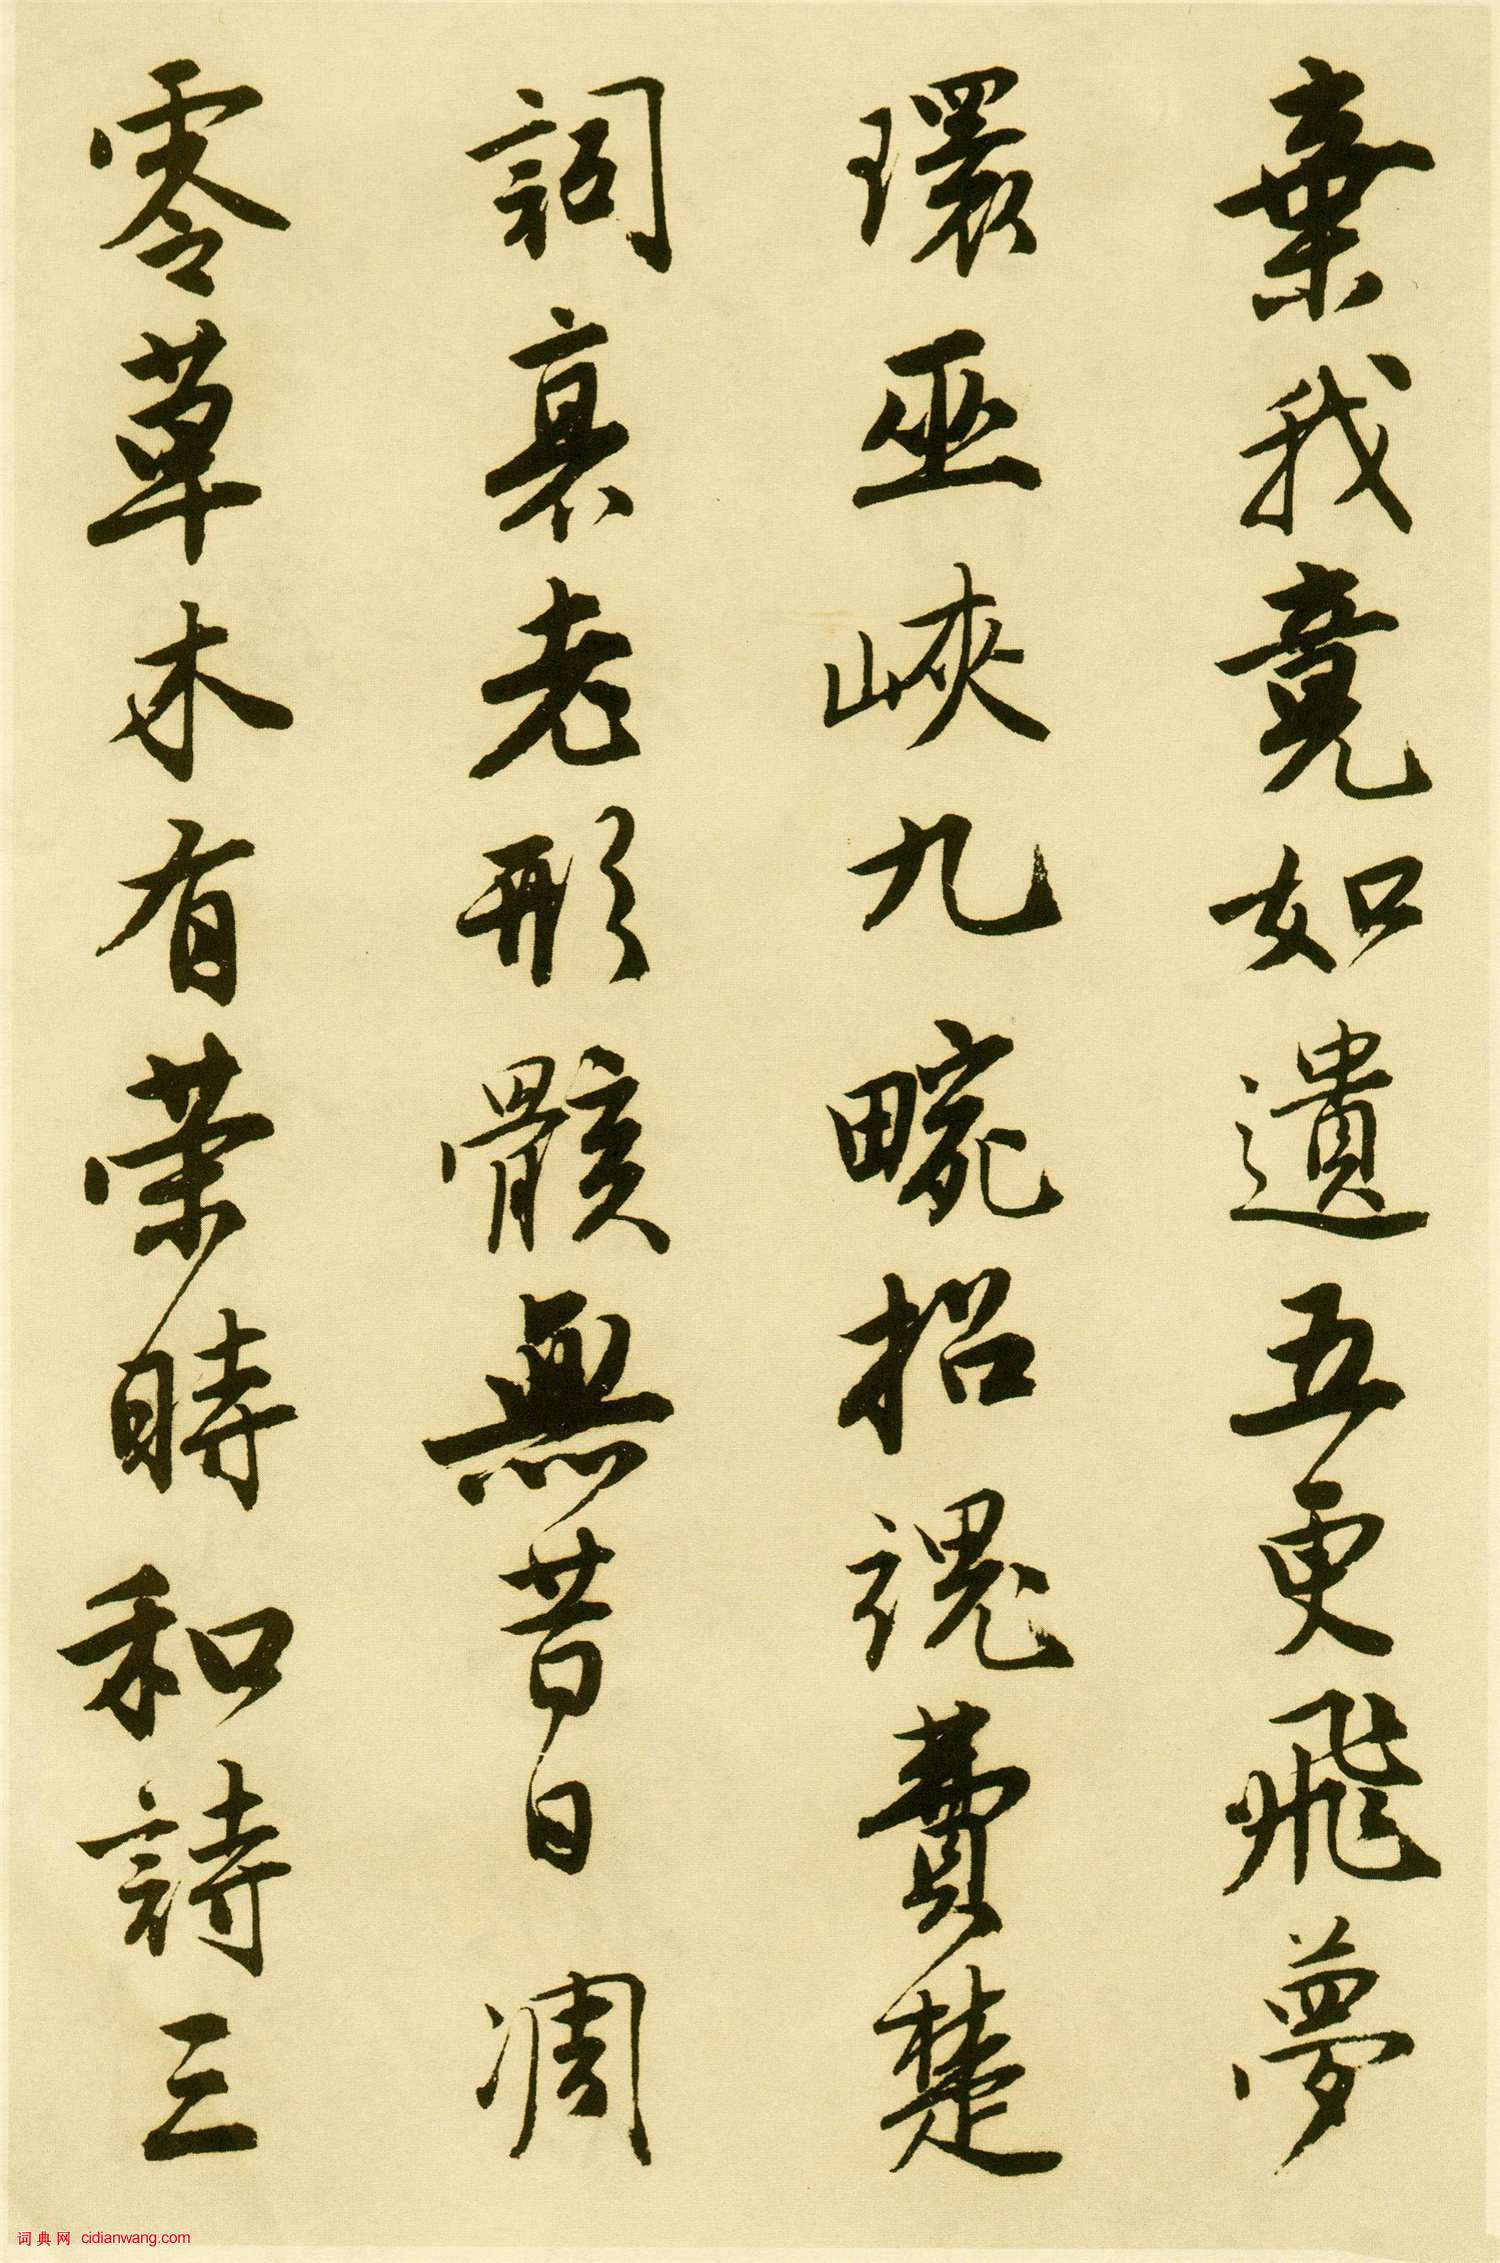 棄我竟如遺五更飛夢
環巫峽九畹招魂費楚
詞衰老形骸無昔日凋
零草木有榮時和詩三
词典网 cidianwang.com